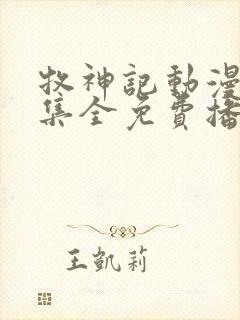 牧神記動漫
集全免費播
王凱莉